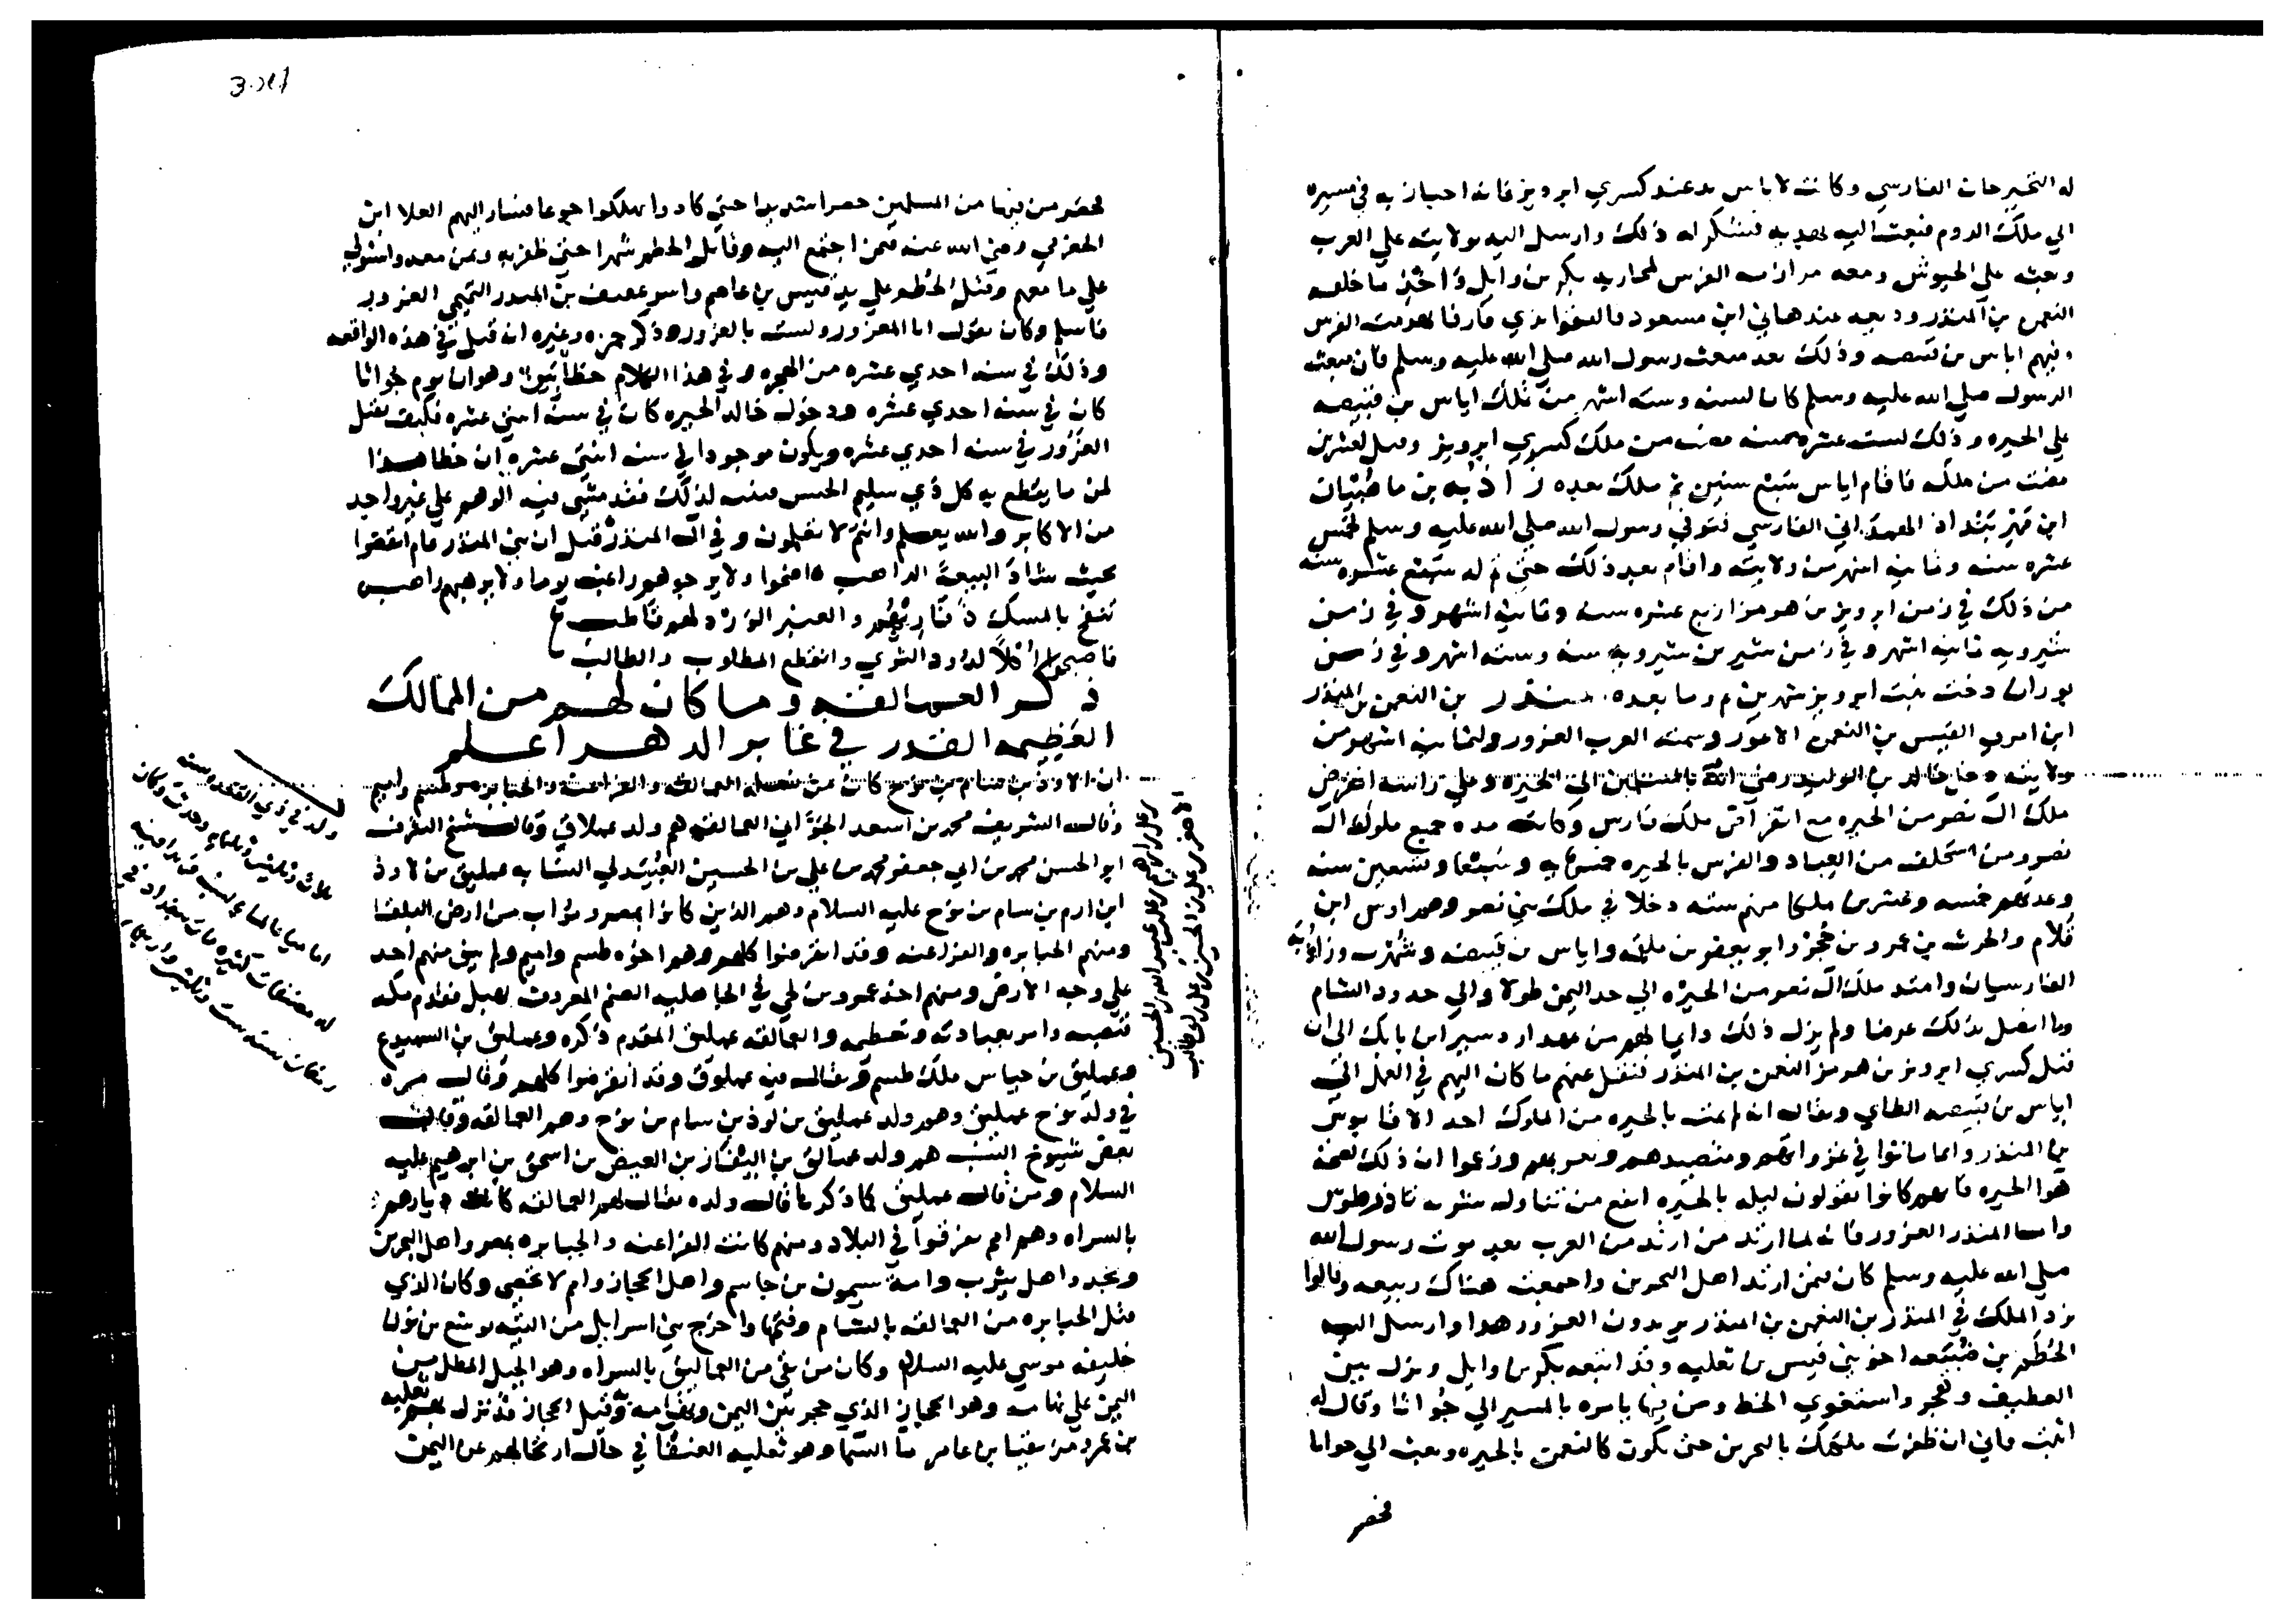 له النخيرجان الفارسي وكانت لاياس يد عند كسري ابرويز فانه اجتاز به في مسيره
الي ملك الروم فبعث اليه بهديه فشكر له ذلك وارسل اليه بولايته علي العرب
وبعثه علي الجيوش ومعه مرازبه الفرس لمحاربه بكر بن وايل واخذ ما خلفه
النعمن بن المنذر وديعه عند هاني ابن مسعود فالتقوا بذي قار فانهزمت الفرس
وفيهم اياس بن قبيصه وذلك بعد مبعث رسول الله صلي الله عليه وسلم فان مبعث
الرسول صلي الله عليه وسلم كان لسنه وسته اشهر من ملك اياس بن قبيصه
علي الحيره وذلك لست عشره سنه مضت من ملك كسري ابرويز وقيل لعشرين
مضت من ملكه فاقام اياس سبع سنين ثم ملك بعده زاذبه بن ماهبيان
ابن مهربنداد الهمداني الفارسي فتوفي رسول الله صلي الله عليه وسلم لخمس
عشره سنه وثمانيه اشهر من ولايته واقام بعد ذلك حتي تم له سبع عشره سنه
من ذلك في زمن ابرويز بن هرمز اربع عشره سنه وثمانيه اشهر وفي زمن
شيرويه ثمانيه اشهر وفي زمن شير بن شيرويه سنه وسته اشهر وفي زمن
بوران دخت بنت ابرويز شهرين وما بعده. منذر بن النعمن بن المنذر
ابن امري القيس بن النعمن الاعور وسمته العرب الغرور ولثمانيه اشهر من
ولايته دخل خالد بن الوليد رضي الله بالمسلمين الي الحيره وعلي راسه انقرض
ملك ال نصر من الحيره مع انقراض ملك فارس وكانت مده جميع ملوك ال
نصر ومن استخلف من العباد والفرس بالحيره خمسمايه وسبعا وتسعين سنه
وعدتهم خمسه وعشرين ملكا منهم سته دخلا في ملك بني نصر وهم اوس ابن
قلام والحرث بن عمرو بن حجر وابو يعفر بن علقمه واياس بن قبيصه وشهرب وزاذبه
الفارسيان وامتد ملك ال نصر من الحيره الي حد اليمن طولا والي حدود الشام
وما اتصل بذلك عرضا ولم يزل ذلك دايما لهم من عهد اردشير ابن بابك الي ان
قتل كسري ابرويز بن هرمز النعمن بن المنذر فنقل عنهم ما كان اليهم في العمل الي
اياس بن قبيصه الطاي ويقال انه لم يمت بالحيره من الملوك احد الا قابوس
بن المنذر وانما ماتوا في غزواتهم ومتصيدهم وتغربهم وزعموا ان ذلك لصحه
هوا الحيره فانهم كانوا يقولون ليله بالحيره انفع من تناول شربه تاذريطوس
واما المنذر الغرور فانه لما ارتد من ارتد من العرب بعد موت رسول الله
صلي الله عليه وسلم كان فيمن ارتد اهل البحرين واجمعت هناك ربيعه وقالوا
نرد الملك في المنذر بن النعمن بن المنذر يريدون الغرور هذا وارسل اليه
الحطم بن ضبيعه اخو بني قيس بن ثعلبه وقد اتبعه بكر بن وايل ونزل بين
القطيف وهجر واستغوي الخط ومن فيها يامره بالمسير الي جواثا وقال له
اثبت فاني ان ظفرت ملكتك بالبحرين حتي تكون كالنعمن بالحيره وبعث الي جواثا
فحصر
فحصر من فيها من المسلمين حصرا شديدا حتي كادوا يهلكوا جوعا فسار اليهم العلا ابن
الحضرمي رضي الله عنه فيمن اجتمع اليه وقاتلوا الحطم شهرا حتي ظفر به وبمن معه واستولي
علي ما معهم وقتل الحطم علي يد قيس بن عاصم واسر عفيف بن المنذر التميمي الغرور
فاسلم وكان يقول انا المغرور ولست بالغرور وذكر حمزه وغيره انه قتل في هذه الواقعه
وذلك في سنه احدي عشره من الهجره وفي هذا الكلام خطا بين وهو ان يوم جواثا
كان في سنه احدي عشره ودخول خالد الحيره كان في سنه اثنتي عشره فكيف يقتل
الغرور في سنه احدي عشره ويكون موجودا في سنه اثنتي عشره ان خطا هذا
لمن ما يقطع به كل ذي سليم الحس فتنبه لذلك فقد مشي فيه الوهم علي غير واحد
من الاكابر والله يعلم وانتم لا تعلمون وفي ال المنذر قيل ان بني المنذر عام انقضوا
بحيث شاد البيعة الراهب اضحوا ولا يرجوهم راغب يوما ولا يرهبهم راهب
تنفح بالمسك ذفاريهم والعنبر الورد لهم قاطب
فاصبحوا اكلا لدود الثري وانقطع المطلوب والطالب
ذكر العمالقه وما كان لهم من الممالك
العظيمه القدر في غابر الدهر اعلم
ان لاوذ بن سام بن نوح كان من نسله العمالقه والفراعنه والجبابره وطسم واميم
وقال الشريف محمد بن اسعد الجواني العمالقه هم ولد عملاق وقال شيخ الشرف
ابو الحسن محمد بن ابي جعفر محمد بن علي بن الحسين العبيدلي النسابه عمليق بن لاوذ
ابن ارم بن سام بن نوح عليه السلام وهم الذين كانوا بمصر وبمواب من ارض البلقا
ومنهم الجبابره والفراعنه وقد انقرضوا كلهم وهو اخوه طسم واميم ولم يبق منهم احد
علي وجه الارض ومنهم اخذ عمرو بن لحي في الجاهليه الصنم المعروف بهبل فقدم مكه
فنصبه وامر بعبادته وتعظيمه والعمالقه عمليق المقدم ذكره وعمليق بن السميدع
وعمليق بن حباس ملك طسم ويقال فيه عملوق وقد انقرضوا كلهم وقال مره
في ولد نوح عمليق وهم ولد عمليق بن لوذ بن سام بن نوح وهم العمالقه وقال
بعض شيوخ النسب هم ولد عمالق بن اليفاز بن العيص بن اسحق بن ابرهيم عليه
السلام ومن قال عمليق كما ذكرنا قال ولده يقال لهم العمالقه كانت ديارهم
بالسراه وهم امم تفرقوا في البلاد ومنهم كانت الفراعنه والجبابره بمصر واهل البحرين
ونجد واهل يثرب وامه سيمون من جاسم واهل الحجاز وامم لا تحصي وكان الذي
قتل الجبابره من العمالقه بالشام وفتحها واخرج بني اسرايل من التيه يوشع بن نون
خليفه موسي عليه السلام وكان من بقي من العماليق بالسراه وهو الجبل المطل بين
اليمن علي تهامه وهو الحجاز الذي حجز بين اليمن وتهامه وقيل الحجاز قد نزل بهم ثعلبه
بن عمرو مزيقيا بن عامر ما السما وهو ثعلبه العنقا في حال ارتحالهم عن اليمن